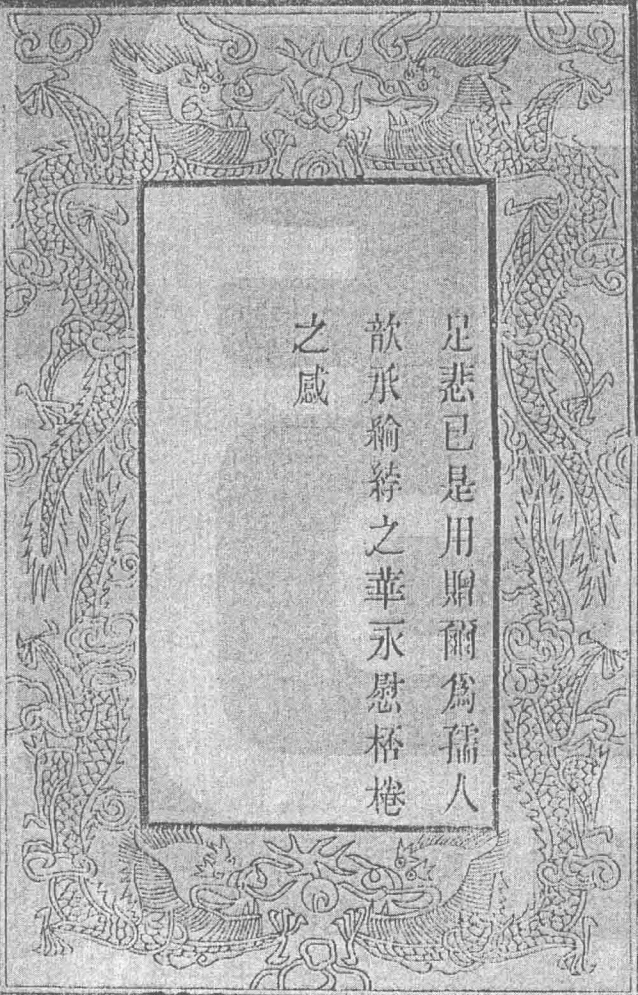 足悲已是用贈爾為孺人
歆承綸綍之華永慰桮棬
之感